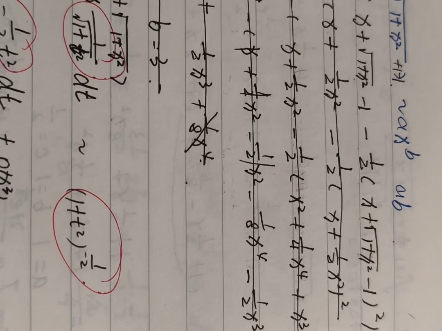 √1+x²+1) ~ ax^b ab
x+√1+x²-1 - 1/2(x+√1+x²-1)²)
(x + 1/2x² - 1/2(x+1/2x²)²
(x+1/2x²-1/2(x²+1/4x⁴+x³
-(x+1/2x²-1/2x²-1/8x⁴-1/2x³
+ 1/2x³+1/8x⁴
b=3
+√1+x²)
1/√1+t² dt ~ (1+t²)^-1/2
-1/2t²)dt + o(x³)